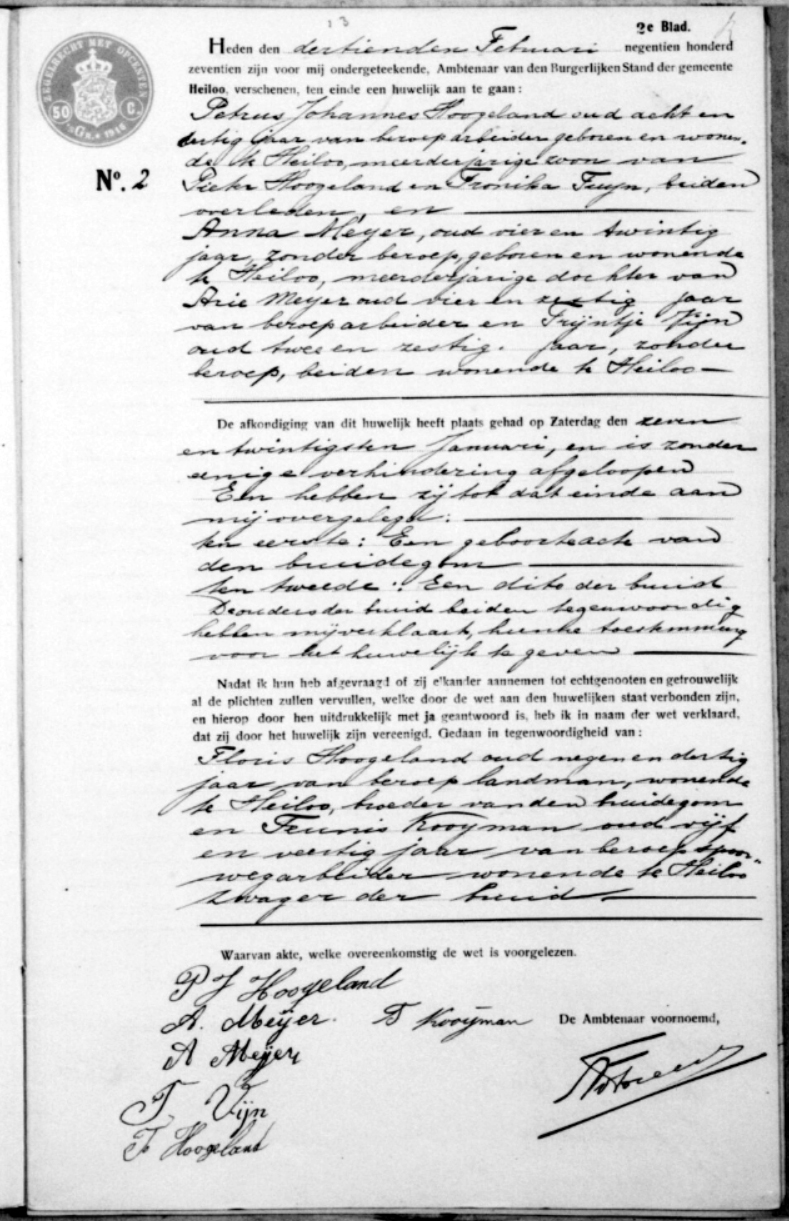 13
2e Blad.
Heden den dertienden Februari negentien honderd
zeventien zijn voor mij ondergeteekende, Ambtenaar van den Burgerlijken Stand der gemeente
Heiloo, verschenen, ten einde een huwelijk aan te gaan :
Petrus Johannes Hoogeland oud acht en
dertig jaar van beroep arbeider geboren en wonen-
de te Heiloo, meerderjarige zoon van
Pieter Hoogeland en Fronika Tuyn, beiden
overleden, en
Anna Meyer, oud vier en twintig
jaar, zonder beroep, geboren en wonende
te Heiloo, meerderjarige dochter van
Arie Meyer oud vier en zestig jaar
van beroep arbeider en Trijntje Vijn
oud twee en zestig jaar, zonder
beroep, beiden wonende te Heiloo
No. 2
ZEGELRECHT MET OPCENTEN
50 C.
De afkondiging van dit huwelijk heeft plaats gehad op Zaterdag den zeven
en twintigsten Januari, en is zonder
eenige verhindering afgeloopen
En hebben zij tot dat einde aan
mij overgelegd:
ten eerste: Een geboorteacte van
den bruidegom
ten tweede: Een dito der bruid
De ouders der bruid beiden tegenwoordig
hebben mij verklaart, hunne toestemming
voor het huwelijk te geven
Nadat ik hun heb afgevraagd of zij elkander aannemen tot echtgenooten en getrouwelijk
al de plichten zullen vervullen, welke door de wet aan den huwelijken staat verbonden zijn,
en hierop door hen uitdrukkelijk met ja geantwoord is, heb ik in naam der wet verklaard,
dat zij door het huwelijk zijn vereenigd. Gedaan in tegenwoordigheid van :
Floris Hoogeland oud negen en dertig
jaar van beroep landman, wonende
te Heiloo, broeder van den bruidegom
en Teunis Kooyman oud vijf
en veertig jaar, van beroep spoor-
wegarbeider wonende te Heiloo
zwager der bruid.
Waarvan akte, welke overeenkomstig de wet is voorgelezen.
P J Hoogeland
A. Meijer. T Kooijman De Ambtenaar voornoemd,
A Meijer
T Vijn
F Hoogeland